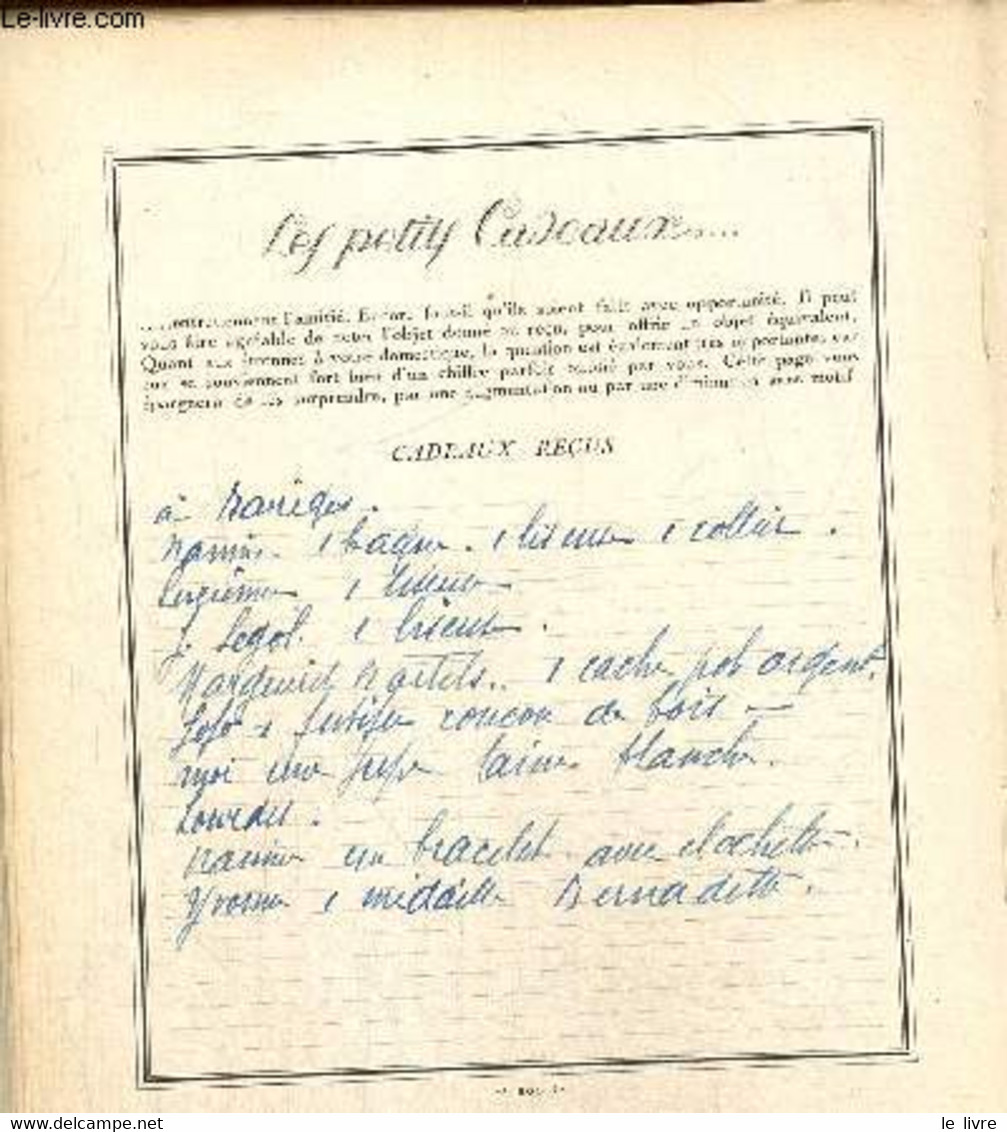 Le-livre.com
Les petits Cadeaux....
...entretiennent l'amitié. Encore faut-il qu'ils soient faits avec opportunité. Il peut
vous être agréable de noter l'objet donné ou reçu, pour offrir un objet équivalent.
Quant aux étrennes à votre domestique, la question est également très importante, car
eux se souviennent fort bien d'un chiffre parfois oublié par vous. Cette page vous
épargnera de les surprendre, par une augmentation ou par une diminution sans motif
CADEAUX REÇUS
à Barèges.
1 bague. 1 liseuse 1 collier.
1 liseuse
J. Legol. 1 liseuse.
1 cache pot argent.
1 de bois —
moi une jupe laine blanche.
Lourdes.
un bracelet avec clochette.
Yvonne 1 médaille Bernadette.
www.delcampe.net
le livre